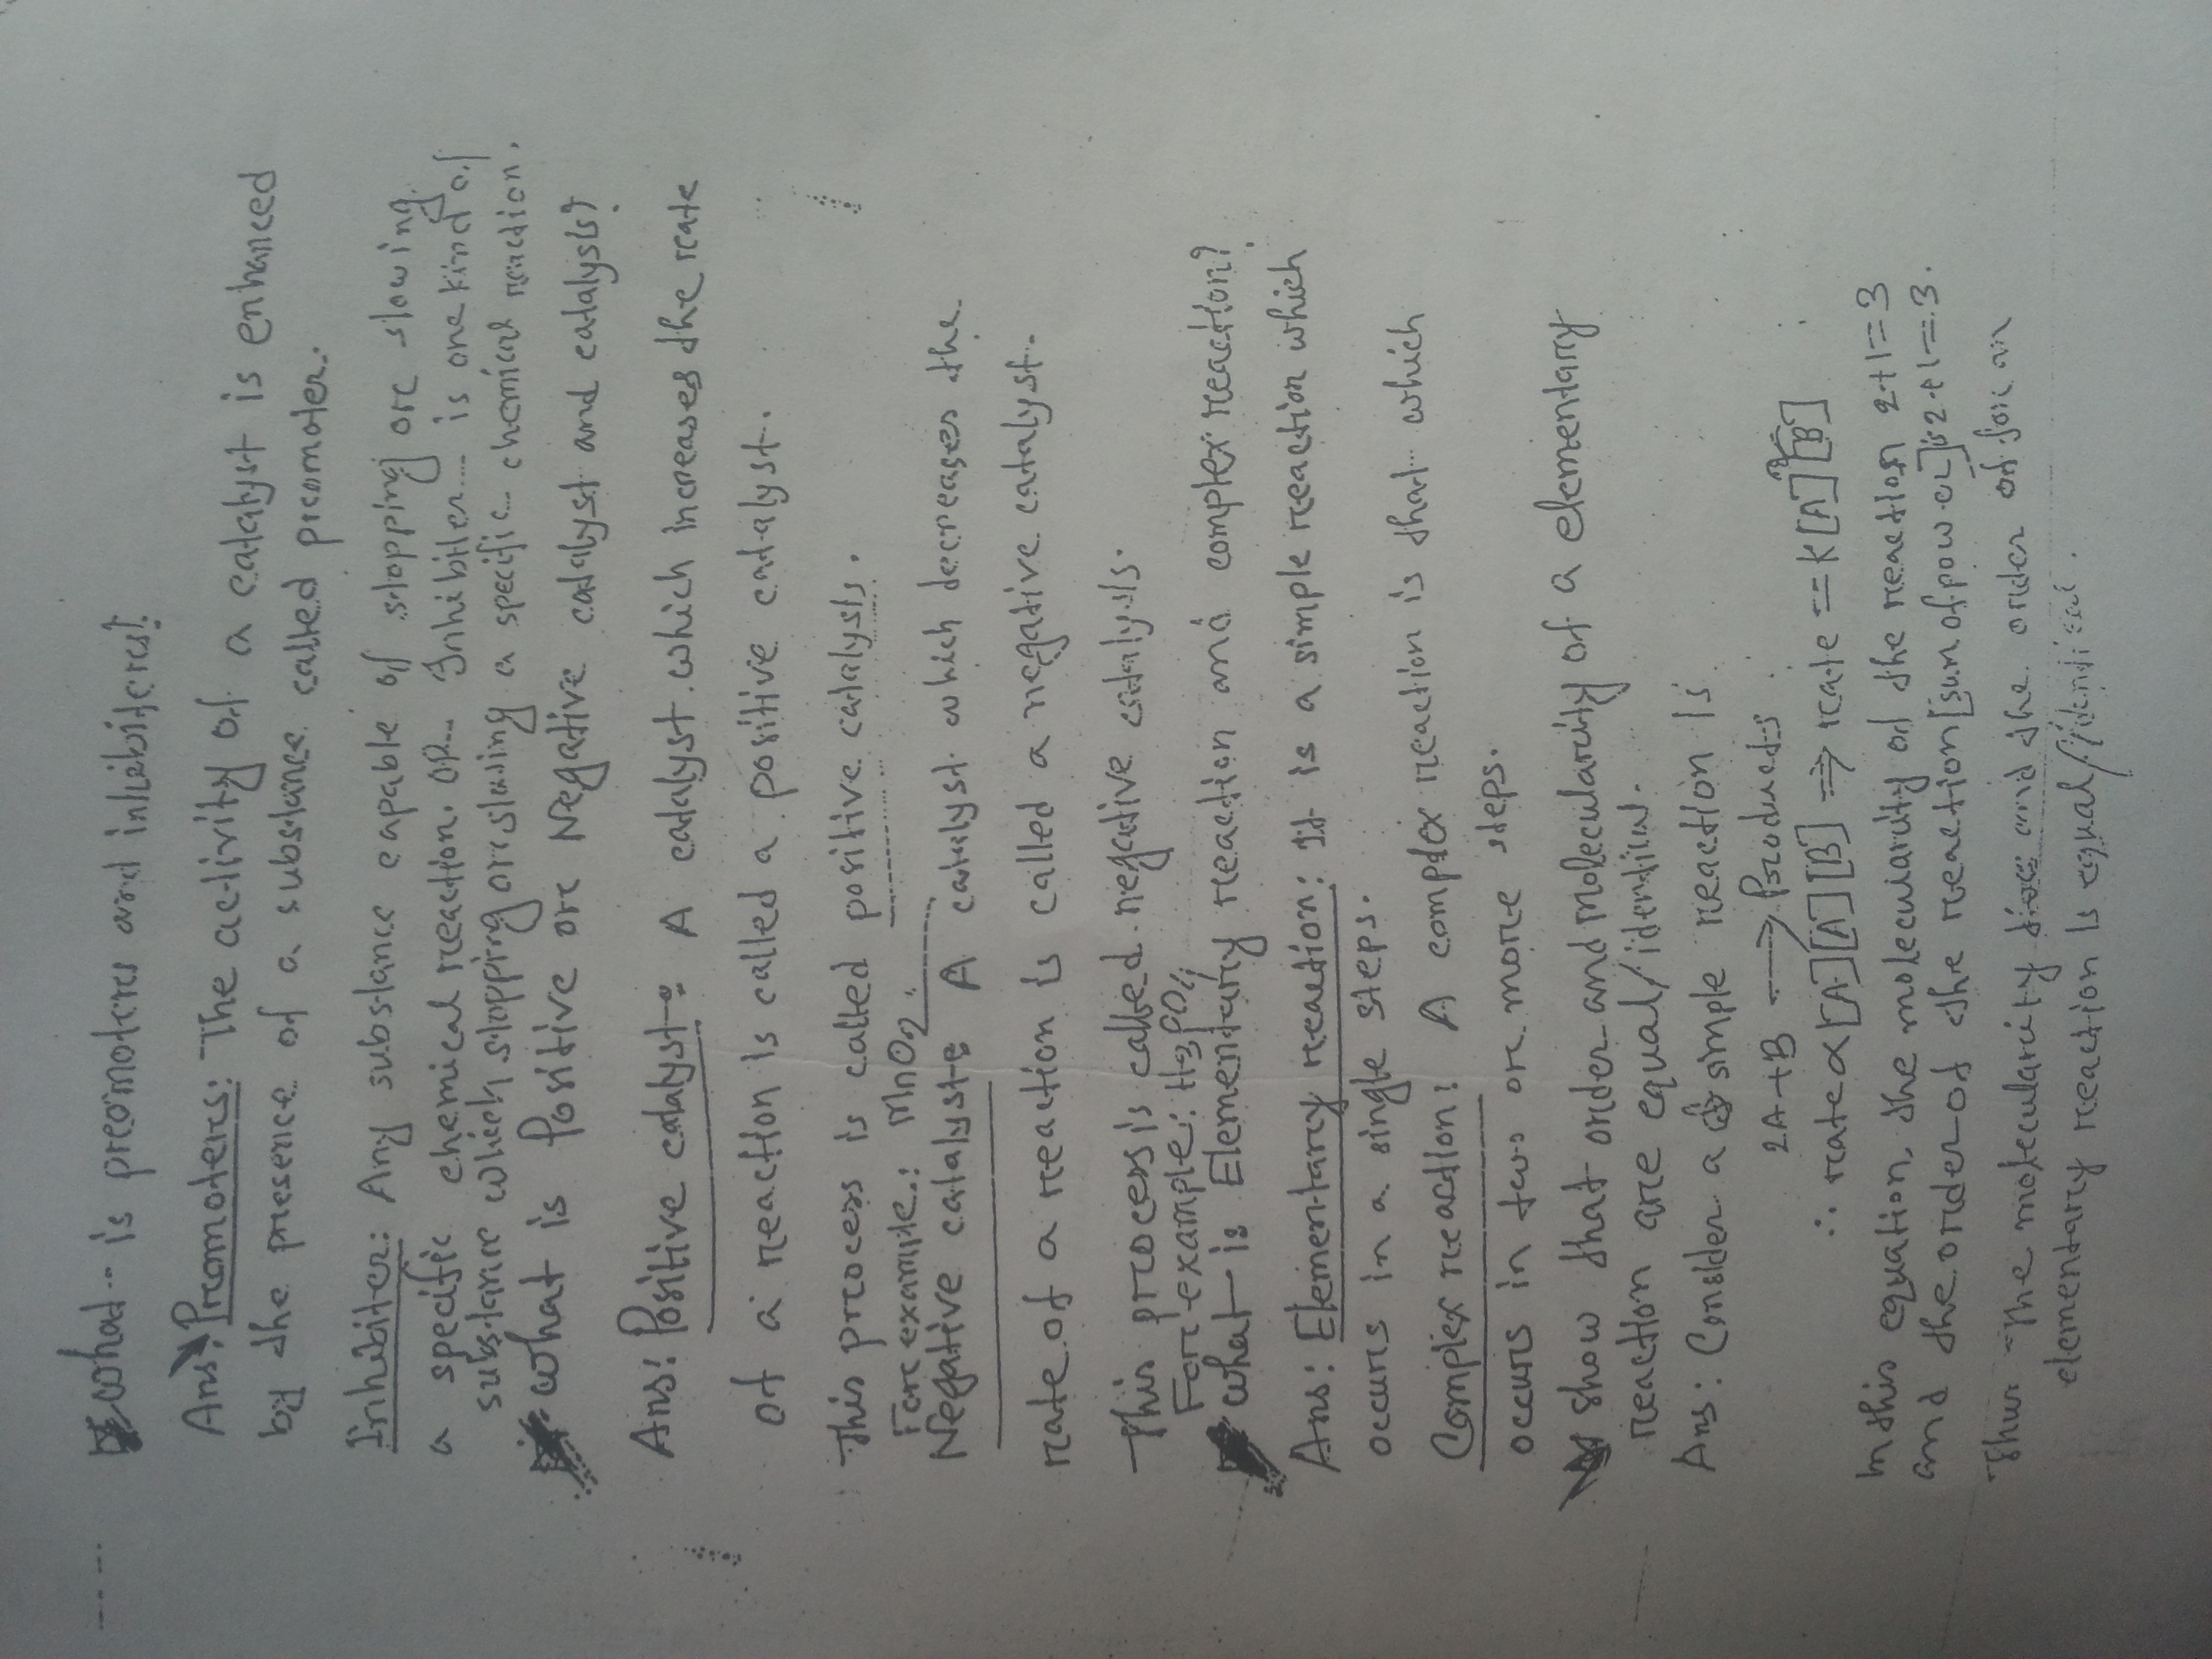 What is preomoters and inhibiters?
Ans: Promoters: The activity of a catalyst is enhanced
by the presence of a substance called promoter.
Inhibiter: Any substance capable of stopping or slowing
a specific chemical reaction. OR Inhibiter is one kind of
substance which stopping or slowing a specific chemical reaction.
What is Positive or Negative catalyst and catalysis?
Ans: Positive catalyst: A catalyst which increases the rate
of a reaction is called a positive catalyst.
This process is called positive catalysis.
For example: MnO2.
Negative catalyst: A catalyst which decreases the
rate of a reaction is called a negative catalyst.
This process is called negative catalysis.
For example: H3PO4
What is Elementary reaction and complex reaction?
Ans: Elementary reaction: It is a simple reaction which
occurs in a single steps.
Complex reaction: A complex reaction is that which
occurs in two or more steps.
Show that order and molecularity of a elementary
reaction are equal/identical.
Ans: Consider a simple reaction is
2A+B → Products
∴ rate ∝ [A][A][B] ⇒ rate = K[A]²[B]
In this equation, the molecularity of the reaction 2+1=3
and the order of the reaction [sum of power] is 2+1=3.
Thus The molecularity and the order of for an
elementary reaction is equal/identical.